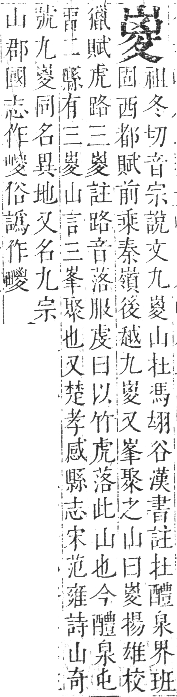 嵏
祖冬切音宗說文九嵏山在馮翊谷漢書註在醴泉界班
固西都賦前乘秦嶺後越九嵏又峯聚之山曰嵏揚雄校
獵賦虎路三嵏註路音落服虔曰以竹虎落此山也今醴泉屯
畱二縣有三嵏山言三峯聚也又楚孝感縣志宋范雍詩山奇
號九嵏同名異地又名九宗
山郡國志作嵕俗譌作㚇